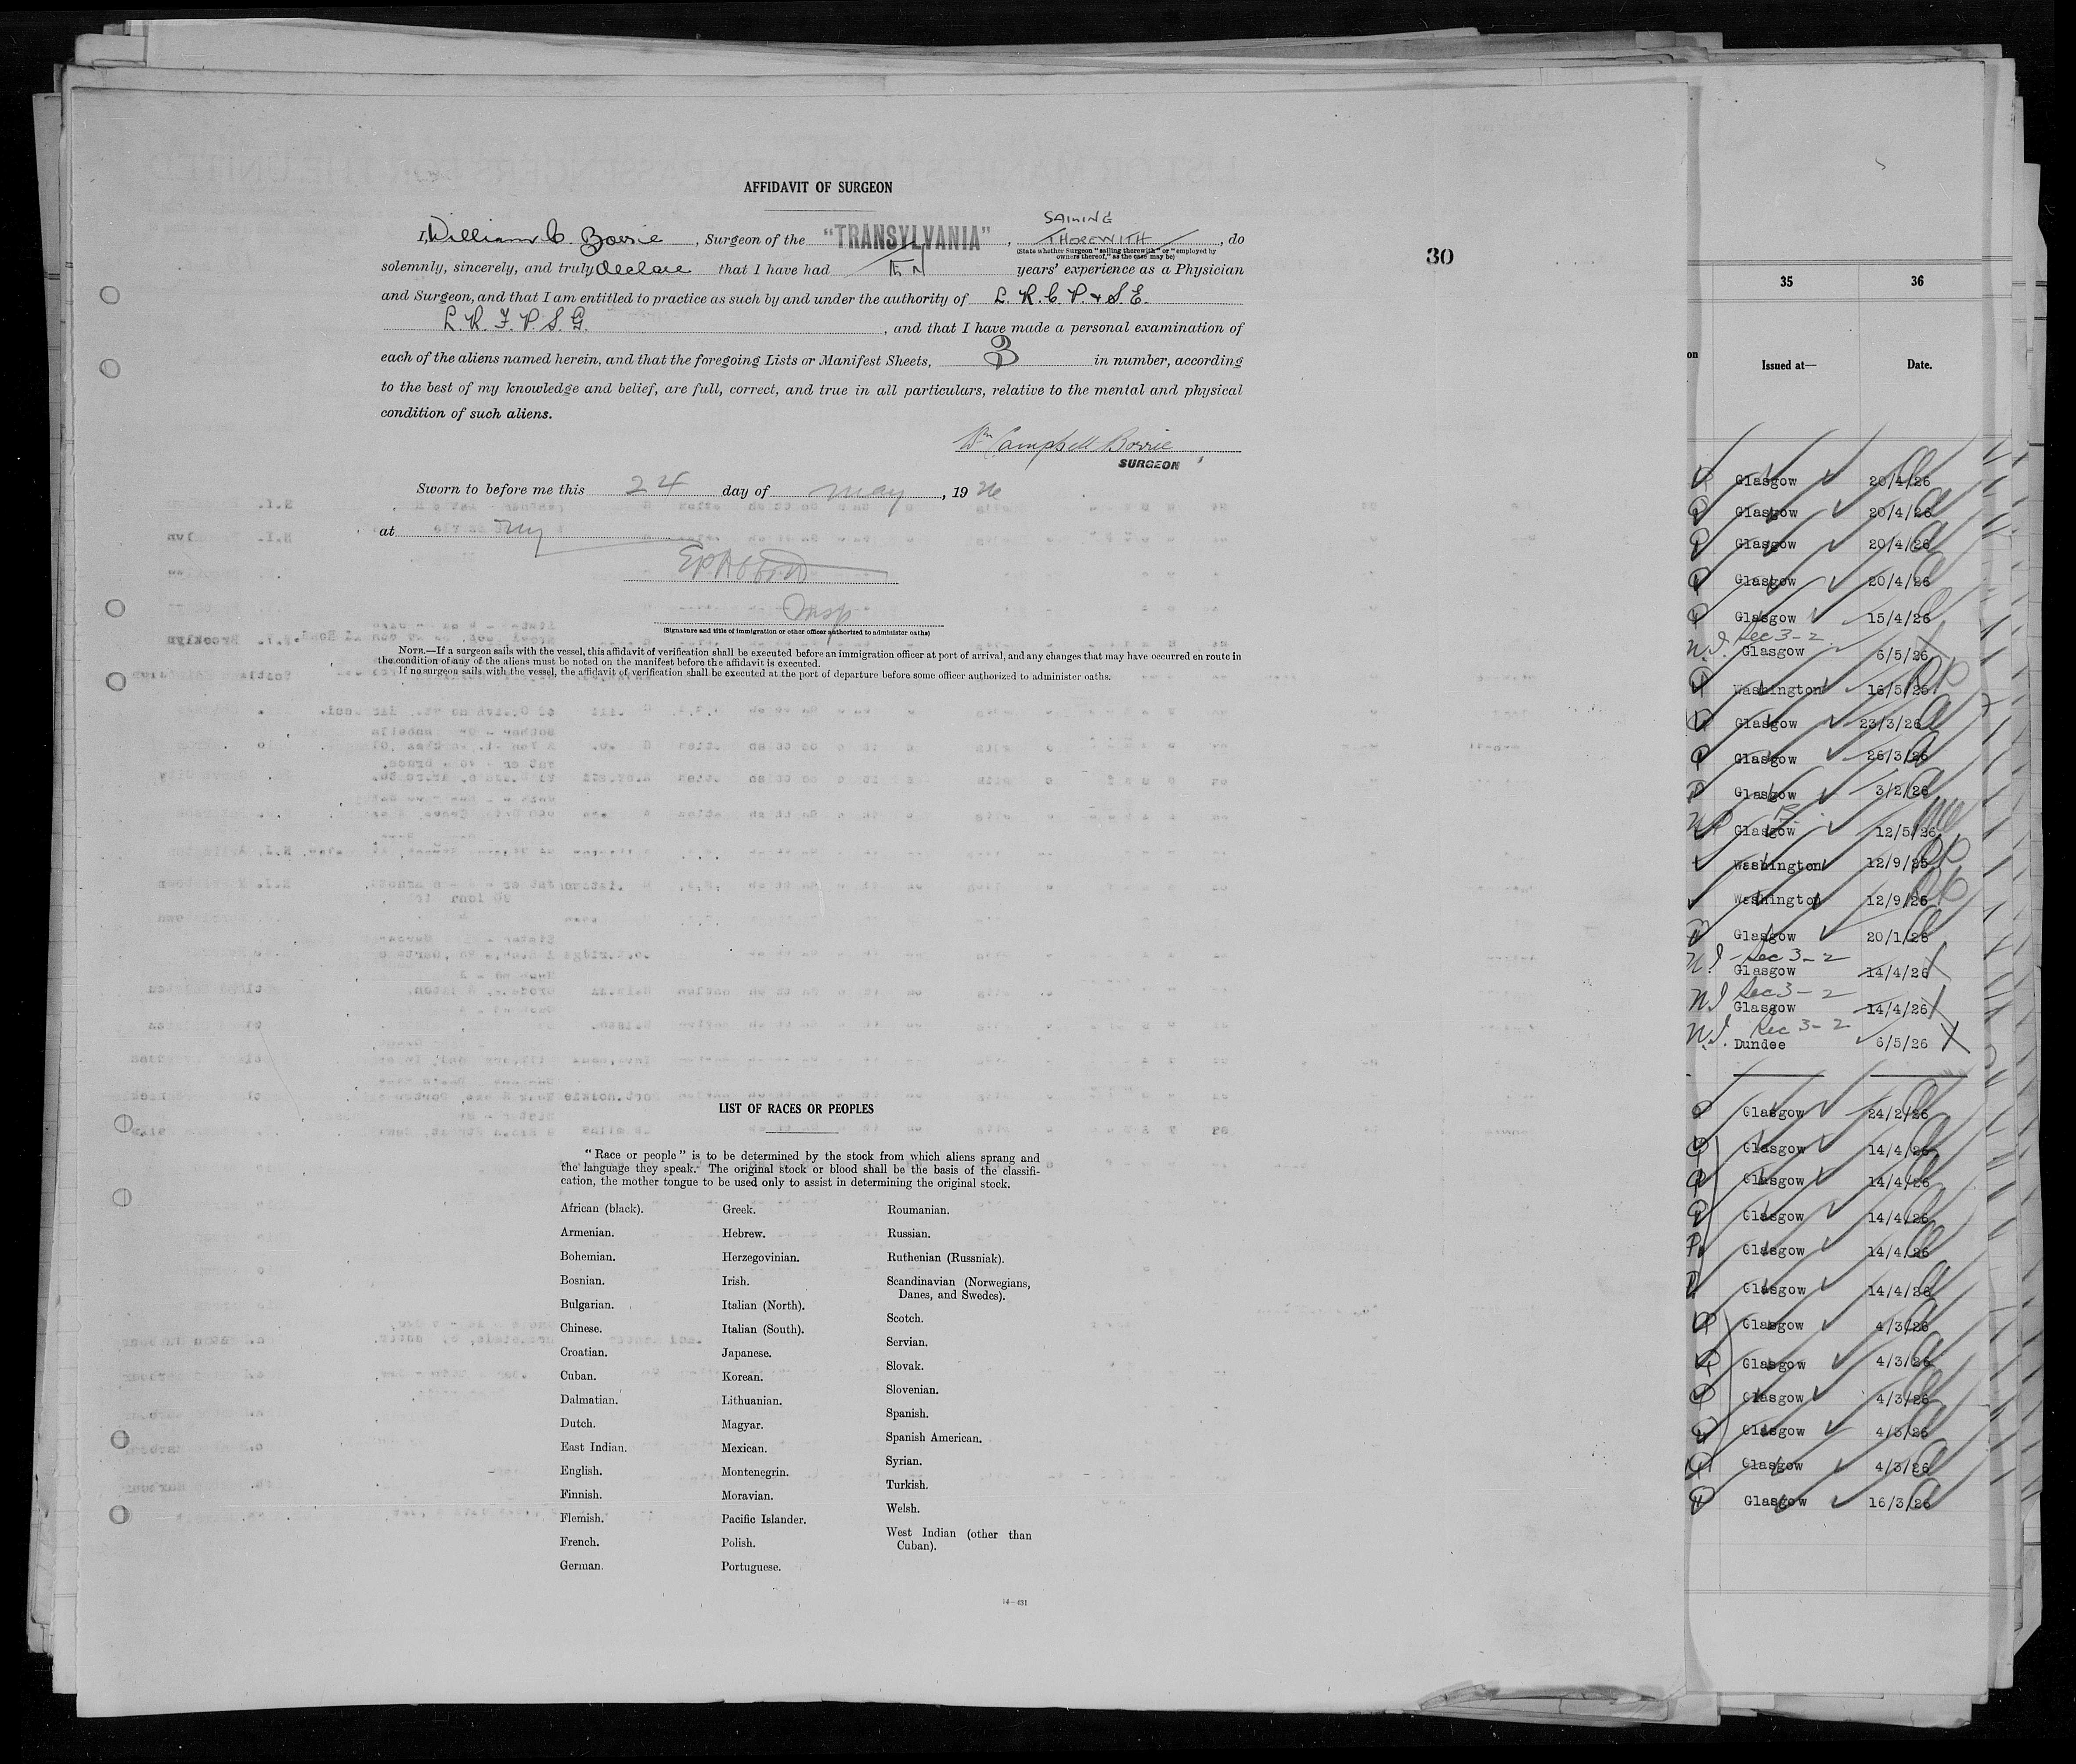 AFFIDAVIT OF SURGEON
I, William C. Borrie, Surgeon of the "TRANSYLVANIA", SAILING THEREWITH, do
(State whether Surgeon "sailing therewith" or "employed by owners thereof," as the case may be)
solemnly, sincerely, and truly declare that I have had TEN years' experience as a Physician
and Surgeon, and that I am entitled to practice as such by and under the authority of L. R. C. P. & S. E.
L. R. F. P. S. G., and that I have made a personal examination of
each of the aliens named herein, and that the foregoing Lists or Manifest Sheets, 3 in number, according
to the best of my knowledge and belief, are full, correct, and true in all particulars, relative to the mental and physical
condition of such aliens.
Wm Campbell Borrie
SURGEON
Sworn to before me this 24 day of May, 1926
at NY
Insp
(Signature and title of immigration or other officer authorized to administer oaths)
NOTE.—If a surgeon sails with the vessel, this affidavit of verification shall be executed before an immigration officer at port of arrival, and any changes that may have occurred en route in
the condition of any of the aliens must be noted on the manifest before the affidavit is executed.
If no surgeon sails with the vessel, the affidavit of verification shall be executed at the port of departure before some officer authorized to administer oaths.
30
LIST OF RACES OR PEOPLES
"Race or people" is to be determined by the stock from which aliens sprang and
the language they speak. The original stock or blood shall be the basis of the classifi-
cation, the mother tongue to be used only to assist in determining the original stock.
African (black).
Armenian.
Bohemian.
Bosnian.
Bulgarian.
Chinese.
Croatian.
Cuban.
Dalmatian.
Dutch.
East Indian.
English.
Finnish.
Flemish.
French.
German.
Greek.
Hebrew.
Herzegovinian.
Irish.
Italian (North).
Italian (South).
Japanese.
Korean.
Lithuanian.
Magyar.
Mexican.
Montenegrin.
Moravian.
Pacific Islander.
Polish.
Portuguese.
Roumanian.
Russian.
Ruthenian (Russniak).
Scandinavian (Norwegians,
Danes, and Swedes).
Scotch.
Servian.
Slovak.
Slovenian.
Spanish.
Spanish American.
Syrian.
Turkish.
Welsh.
West Indian (other than
Cuban).
14—431
35 36
on Issued at— Date.
Glasgow 20/4/26
Glasgow 20/4/26
Glasgow 20/4/26
Glasgow 20/4/26
Glasgow 15/4/26
Sec 3-2
Glasgow 6/5/26
Washington 16/5/25
Glasgow 23/3/26
Glasgow 26/3/26
Glasgow 3/2/26
Glasgow 12/5/26
Washington 12/9/25
Washington 12/9/25
Glasgow 20/1/26
Sec 3-2
Glasgow 14/4/26
Sec 3-2
Glasgow 14/4/26
Sec 3-2
Dundee 6/5/26
Glasgow 24/2/26
Glasgow 14/4/26
Glasgow 14/4/26
Glasgow 14/4/26
Glasgow 14/4/26
Glasgow 14/4/26
Glasgow 4/3/26
Glasgow 4/3/26
Glasgow 4/3/26
Glasgow 4/3/26
Glasgow 4/3/26
Glasgow 16/3/26